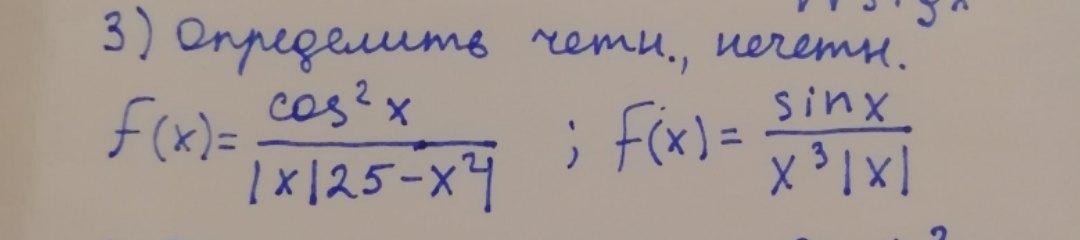 3) Определить четн., нечетн.
f(x) = cos² x / |x|25-x²| ; f(x) = sinx / x³|x|